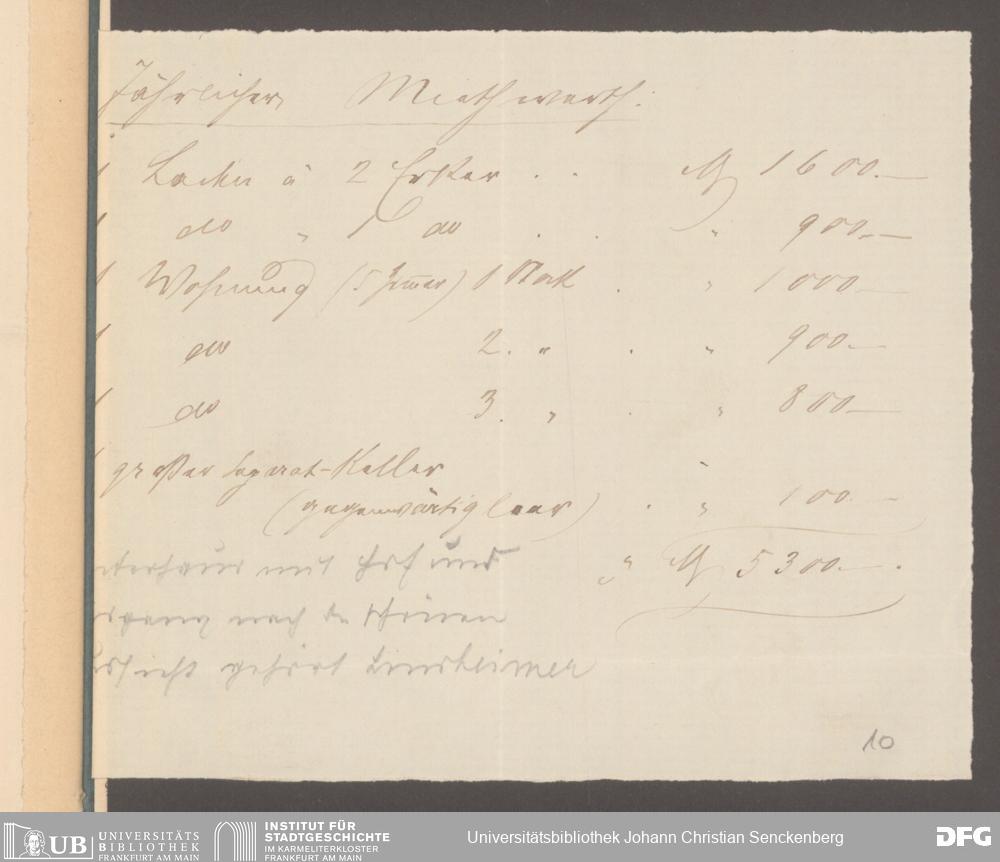 Jährlicher Miethwerth:
1 Laden à 2 Erker . . M 1600.—
1 do " 1 do . . " 900.—
1 Wohnung (5 Zimmer) 1 Stock . " 1000.—
1 do 2. " . " 900.—
1 do 3. " . " 800.—
1 großer Separat-Keller "
(gegenwärtig leer) . " 100.—
" M 5300.—.
nterhaus mit Hof und
rgang nach der
ssicht gehört Linsheimer
10
UB UNIVERSITÄTS BIBLIOTHEK FRANKFURT AM MAIN
INSTITUT FÜR STADTGESCHICHTE IM KARMELITERKLOSTER FRANKFURT AM MAIN
Universitätsbibliothek Johann Christian Senckenberg
DFG